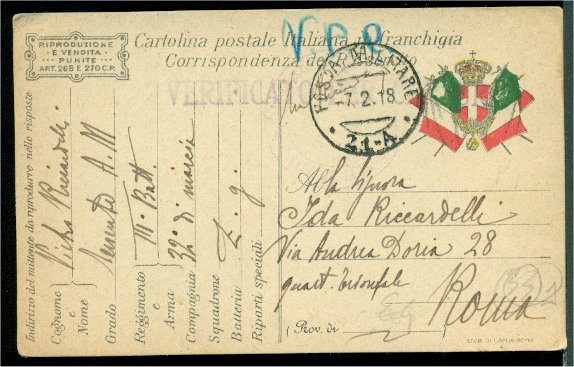 RIPRODUZIONE
E VENDITA
PUNITE
ART. 268 E 270 C.P.
Cartolina postale Italiana in franchigia
Corrispondenza del
VERIFICATO
POSTA MILITARE
-7.2.18
21-A
Alla Signora
Ida Riccardelli
Via Andrea Doria 28
quart. trionfale
Roma
(Prov. di
Indirizzo del mittente da riprodurre nelle risposte
Cognome e Nome
Pietro Riccardelli
Grado
Reggimento e Arma
III. Batt.
Compagnia
32ª di marcia
Squadrone
Batteria
Z. g.
Riparti speciali